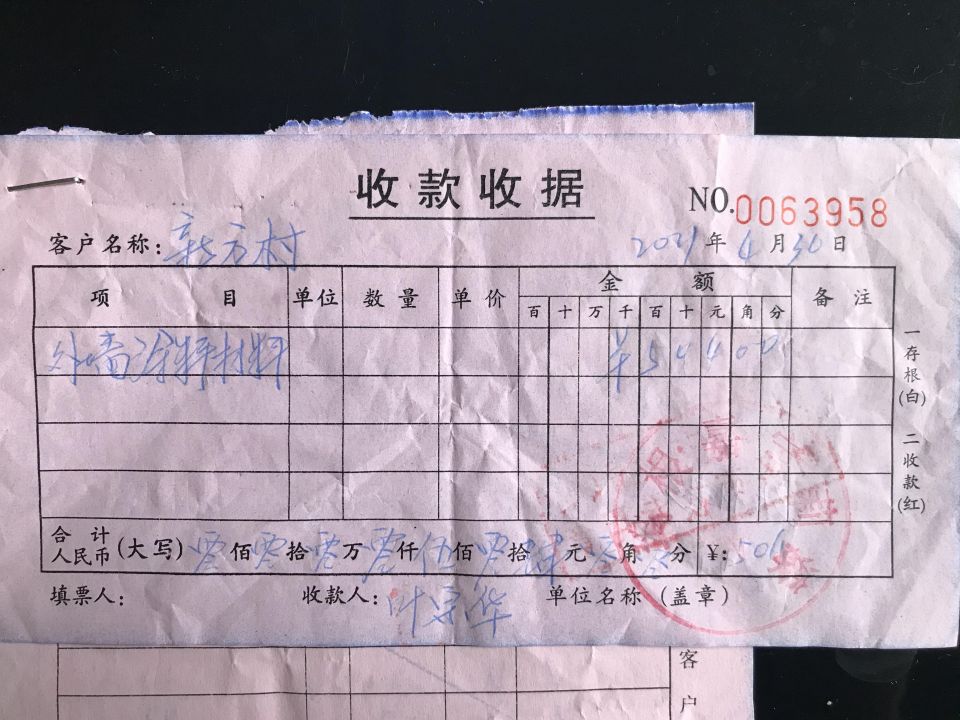 收款收据
NO.0063958
客户名称：新方村
2021年4月30日
项目 单位 数量 单价 金额 备注
百 十 万 千 百 十 元 角 分
外墙涂料材料 ¥ 5 4 4 0 0
合计人民币(大写) 零佰零拾零万零仟伍佰零拾肆元零角零分 ¥：504
填票人： 收款人：叶宗华 单位名称（盖章）
一存根(白) 二收款(红)
客户